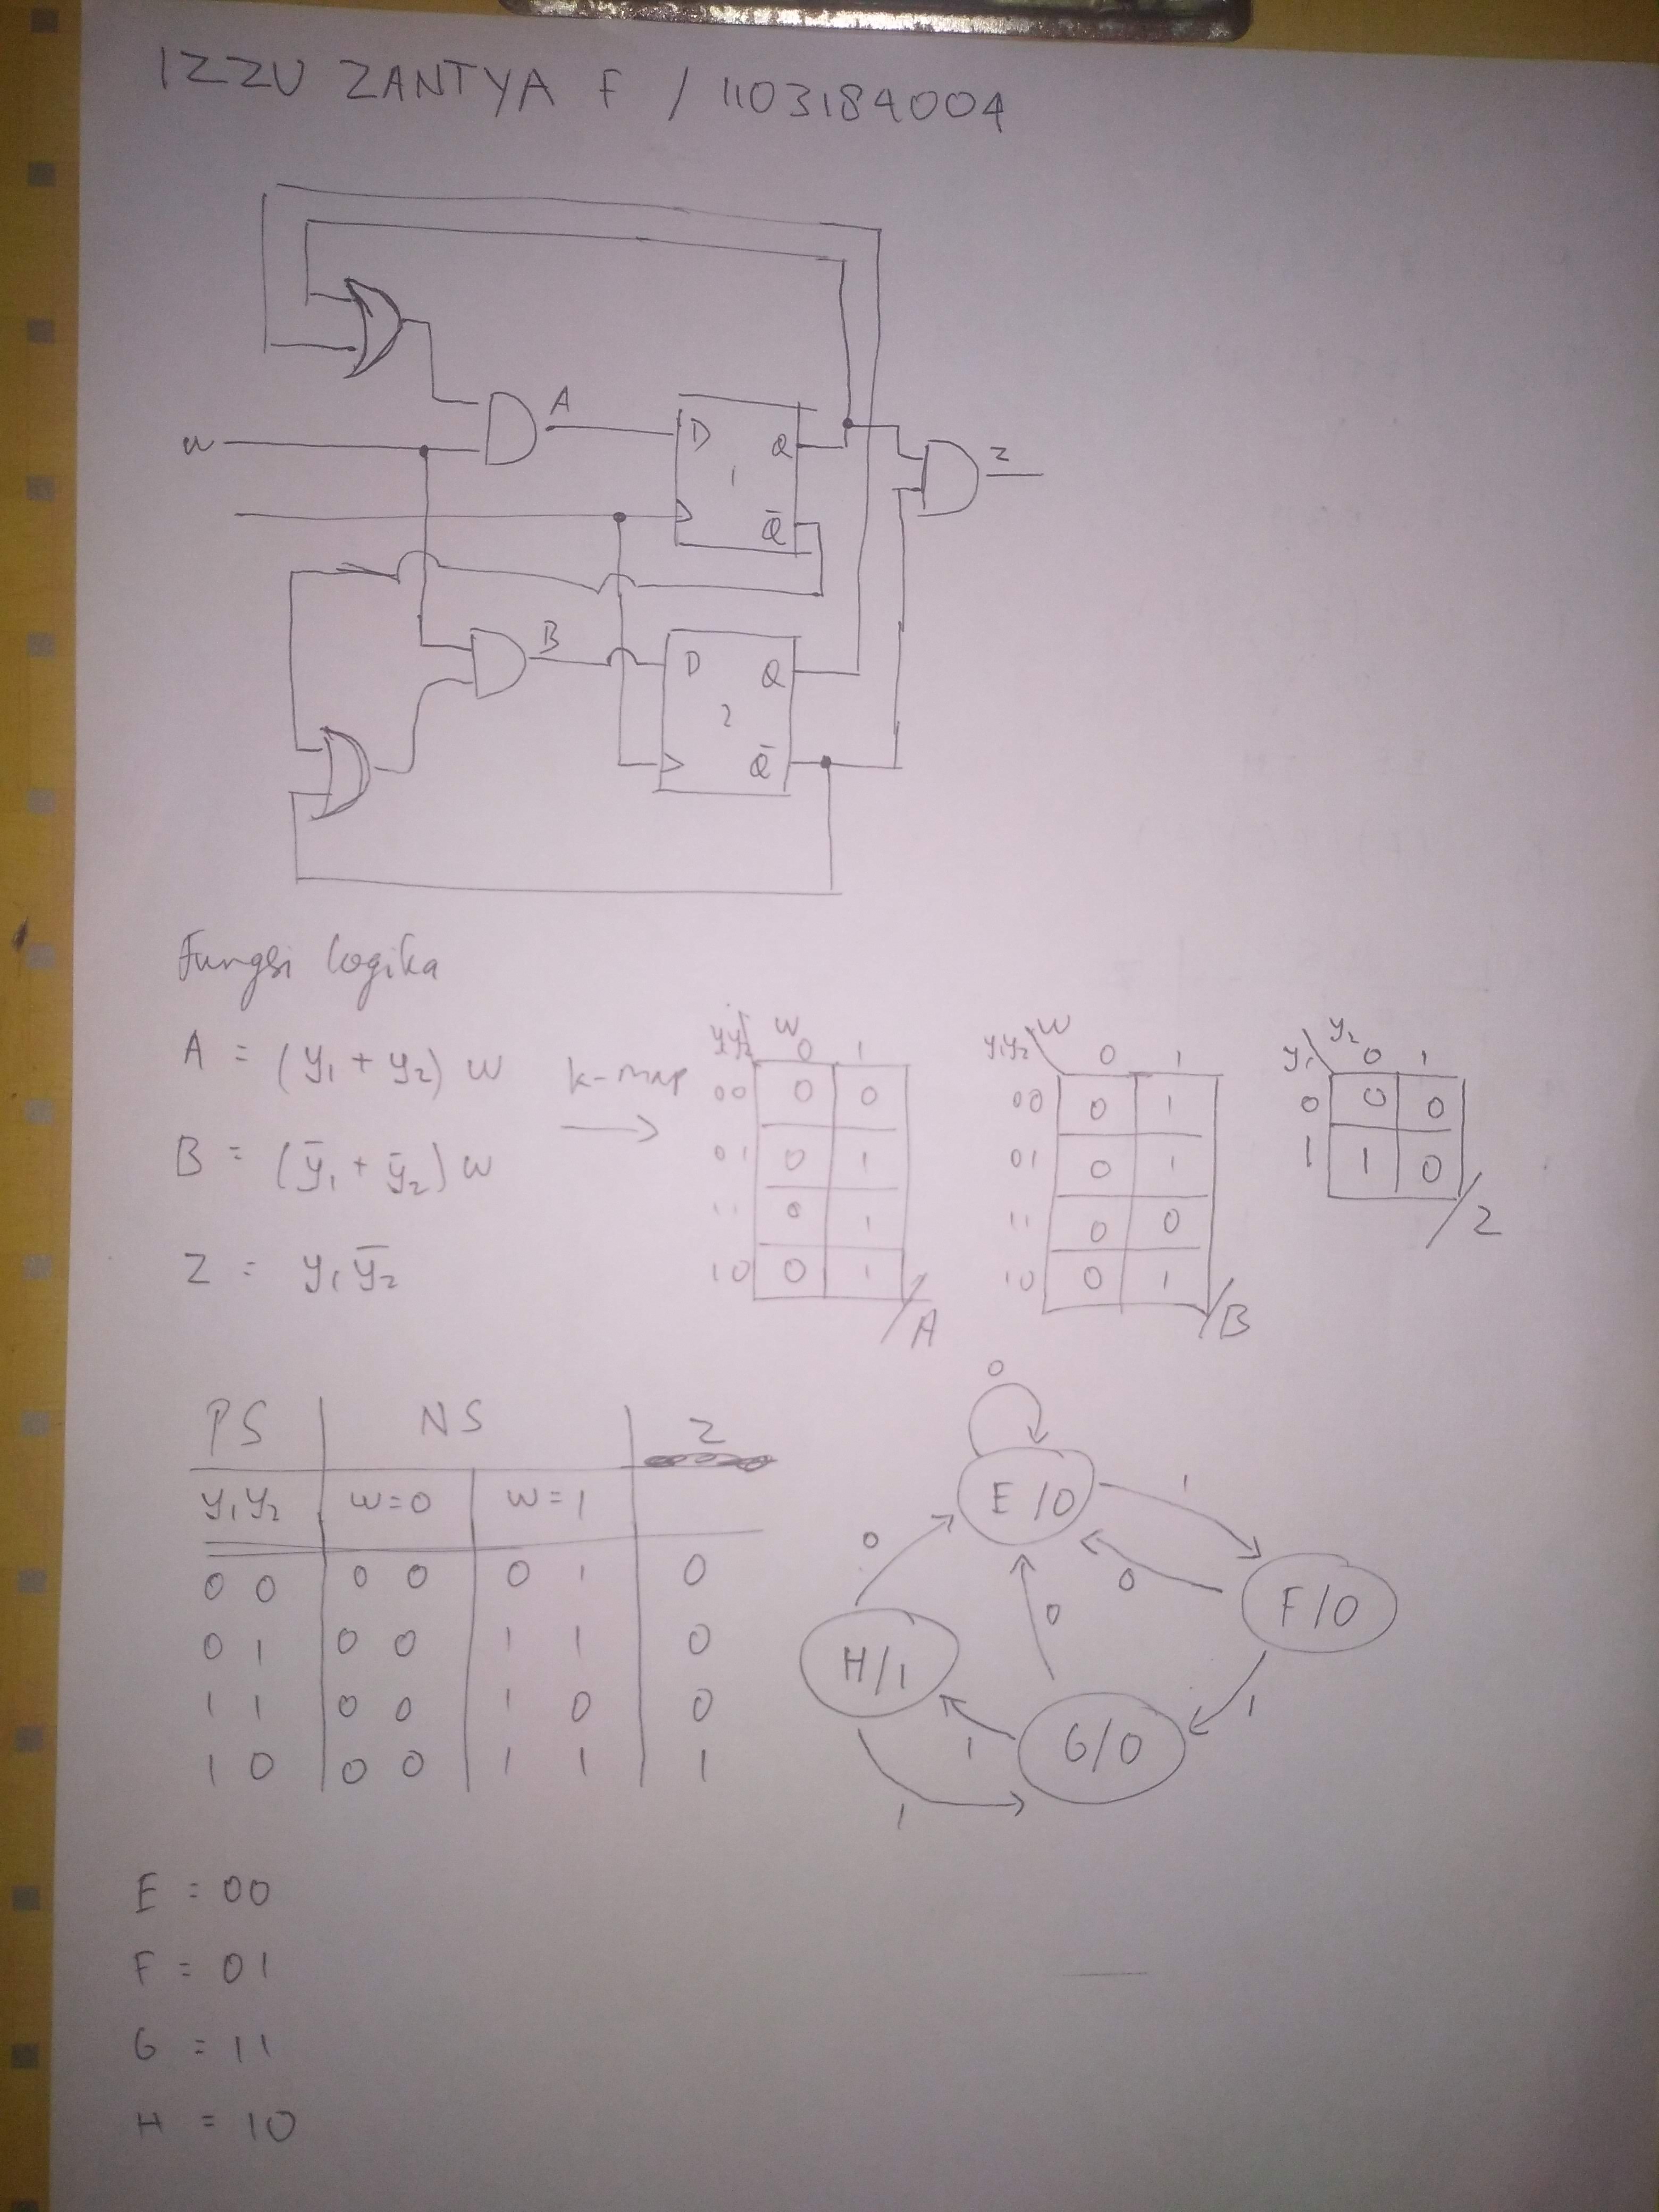 IZZU ZANTYA F / 1103184004
A
W
D
Q
Z
1
Q̅
B
D
Q
2
Q̅
Fungsi logika
A = (y₁ + y₂) w
k-map
B = (y̅₁ + y̅₂) w
Z = y₁ y̅₂
y₁y₂ \ w 0 1
00 0 0
01 0 1
11 0 1
10 0 1
/A
y₁y₂ \ w 0 1
00 0 1
01 0 1
11 0 0
10 0 1
/B
y₁ \ y₂ 0 1
0 0 0
1 1 0
/Z
PS NS Z
y₁y₂ w=0 w=1
0 0 0 0 0 1 0
0 1 0 0 1 1 0
1 1 0 0 1 0 0
1 0 0 0 1 1 1
0
E/0
1
0
0
F/0
0
H/1
1
G/0
1
1
E = 00
F = 01
G = 11
H = 10